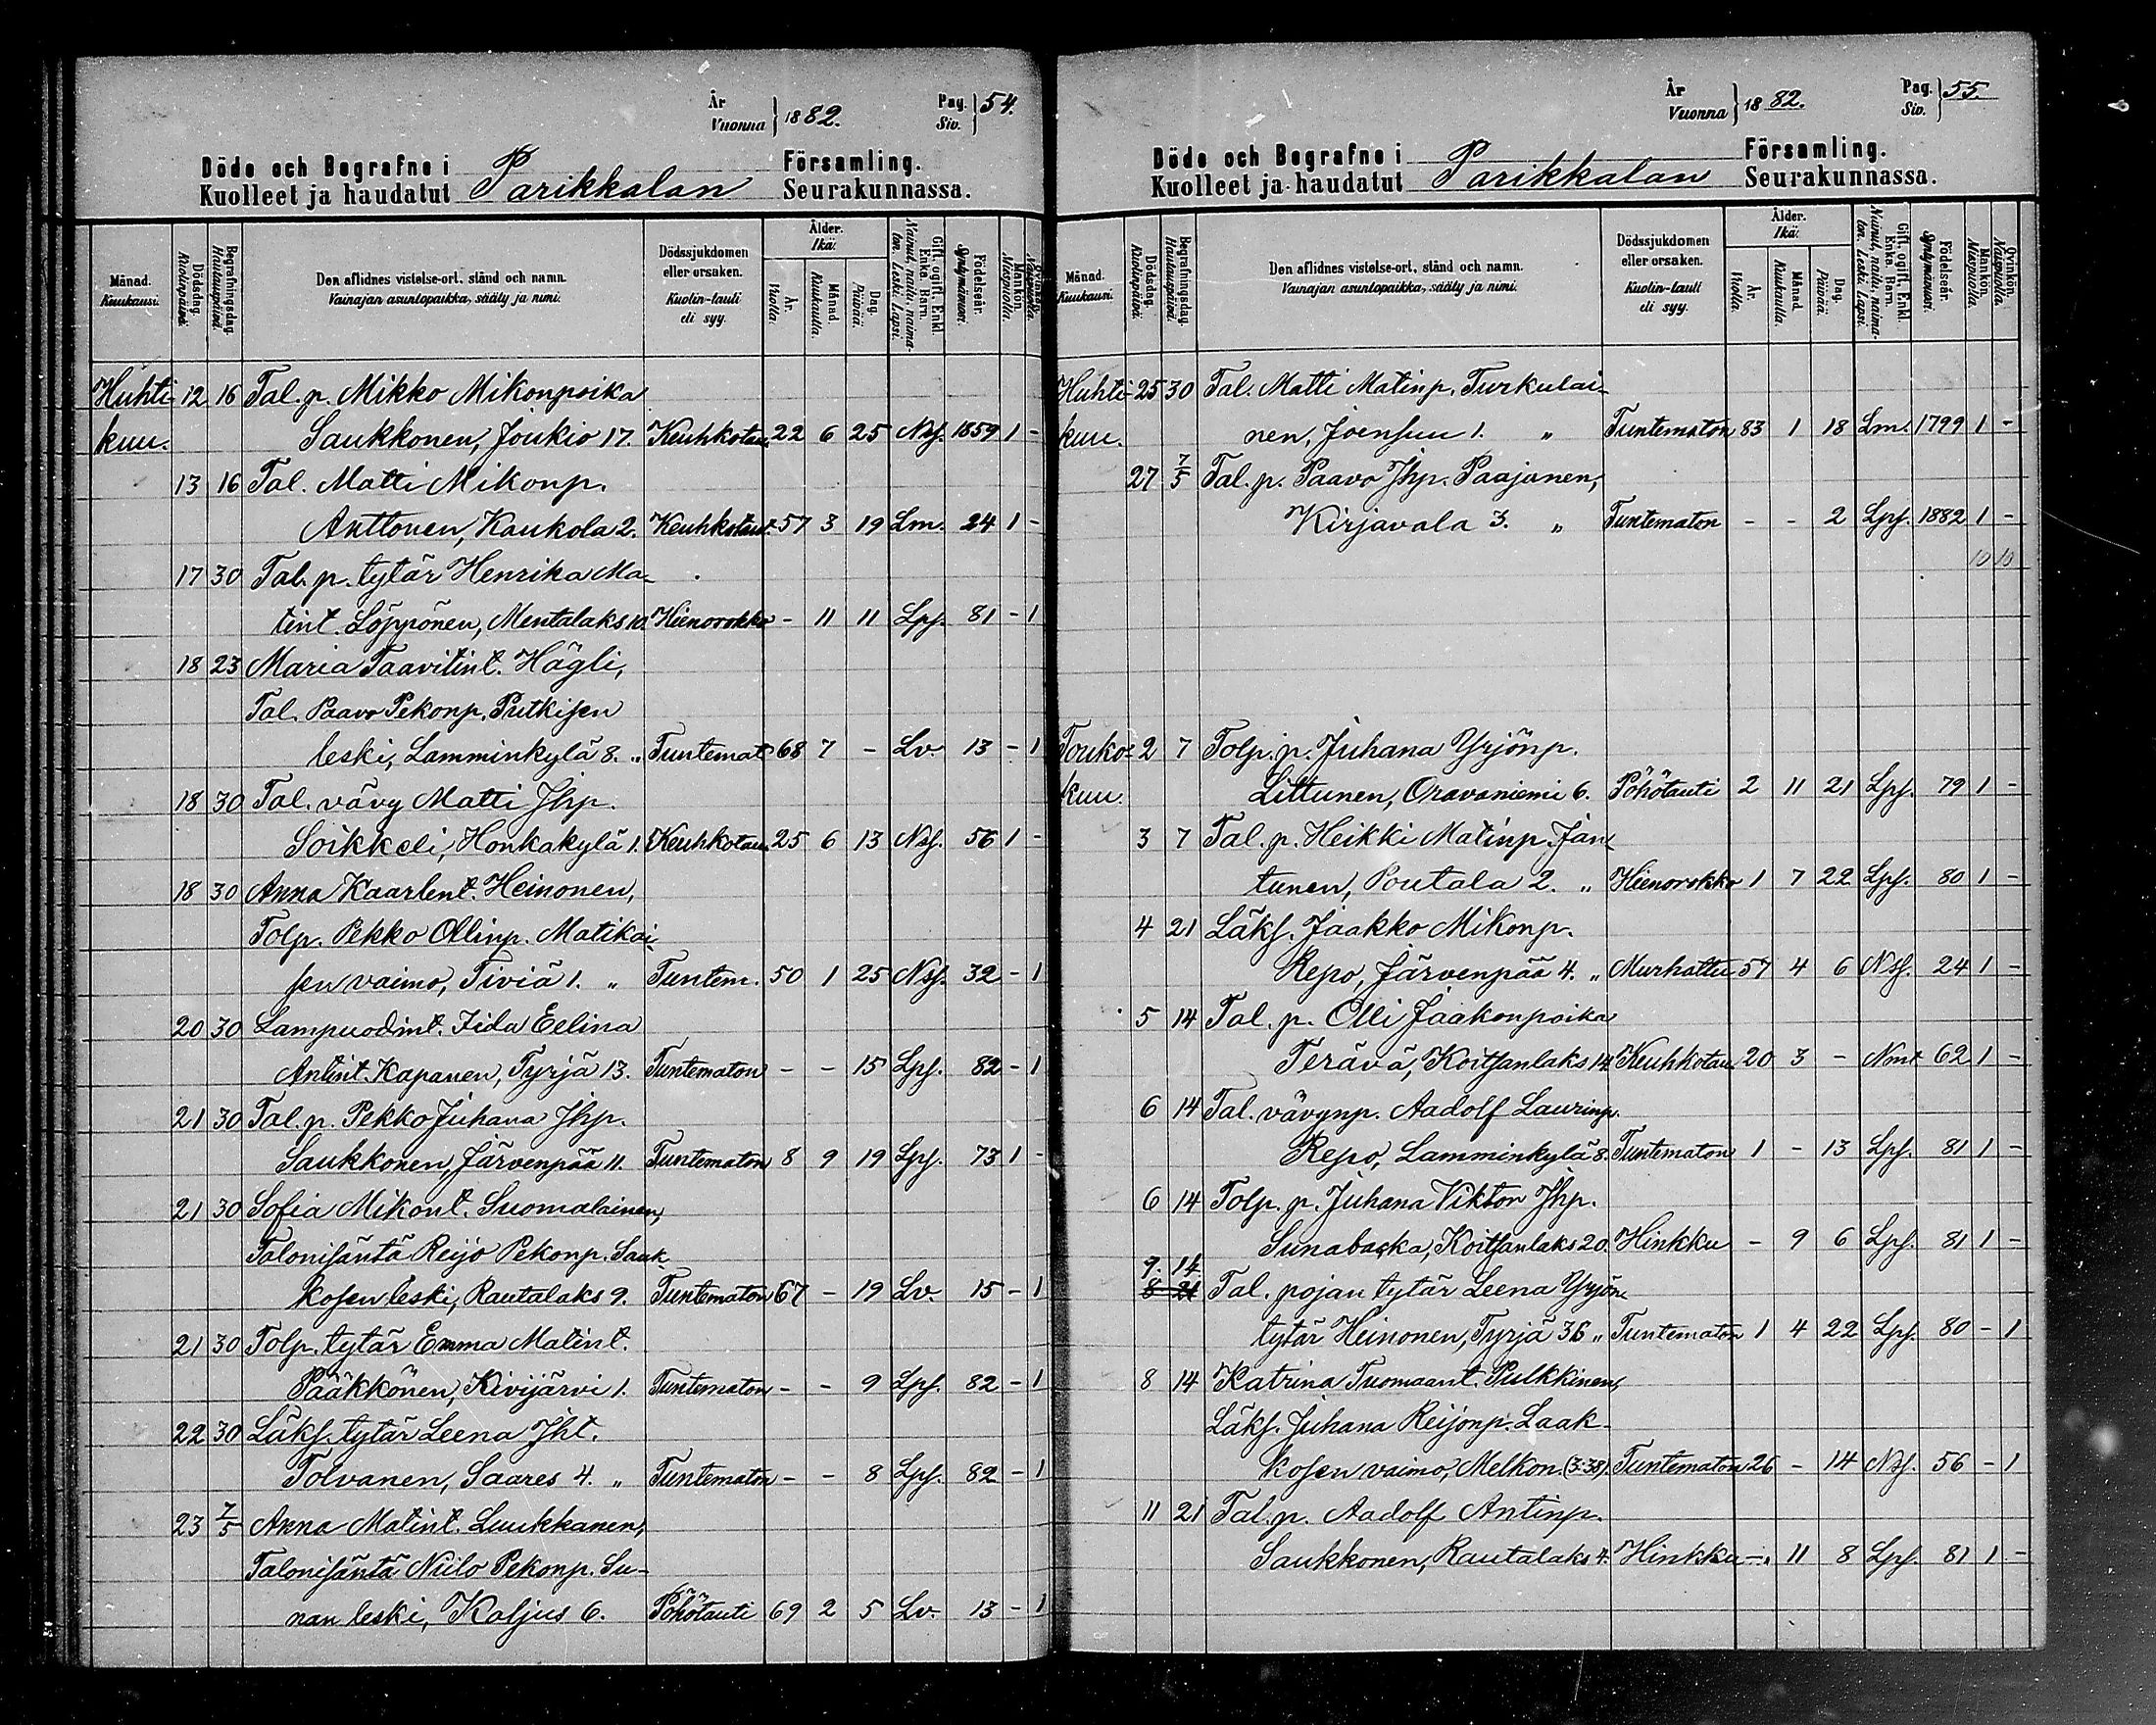 År Vuonna } 1882. Pag. Siv. } 54.
Döde och Begrafne i Parikkalan Församling.
Kuolleet ja haudatut Seurakunnassa.
Månad. Kuukausi. Dödsdag. Kuolinpäivä. Begrafningsdag. Hautauspäivä. Den aflidnes vistelse-ort, stånd och namn. Vainajan asuntopaikka, sääty ja nimi. Dödssjukdomen eller orsaken. Kuolin-tauti eli syy. Ålder. Ikä: År. Vuotta. Månad. Kuukautta. Dag. Päivää. Gift, ogift, Enkl. Enka, Barn. Nainut, naitu, naimaton, Leski, Lapsi. Födelseår. Syntymävuosi. Mankön. Miespuolta. Qvinkön. Naispuolta.
Huhti- 12 16 Tal. p. Mikko Mikonpoika
kuu. Saukkonen, Joukio 17. Keuhkotau. 22 6 25 Nsf. 1859 1 -
13 16 Tal. Matti Mikonp.
Anttonen, Kaukola 2. Keuhkotaut. 57 3 19 Lm. 24 1 -
17 30 Tal. p. tytär Henrika Ma-
tint. Löppönen, Mentalaks 10. Hienorokko - 11 11 Lps. 81 - 1
18 23 Maria Taavitint. Hägli,
Tal. Paavo Pekonp. Putkisen
leski, Lamminkylä 8. „ Tuntemat. 68 7 - Lv. 13 - 1
18 30 Tal. vävy Matti Jhp.
Soikkeli, Honkakylä 1. Keuhkotau. 25 6 13 Nsf. 56 1 -
18 30 Anna Kaarlent. Heinonen,
Tolp. Pekko Ollinp. Matikai-
sen vaimo, Tiviä 1. „ Tuntem. 50 1 25 Nsf. 32 - 1
20 30 Lampuodint. Iida Eelina
Antint. Kapanen, Tyrjä 13. Tuntematon - - 15 Lps. 82 - 1
21 30 Tal. p. Pekko Juhana Jhp.
Saukkonen, Järvenpää 11. Tuntematon 8 9 19 Lps. 73 1 -
21 30 Sofia Mikont. Suomalainen,
Talonisäntä Reijo Pekonp. Laak-
kosen leski, Rautalaks 9. Tuntematon 67 - 19 Lv. 15 - 1
21 30 Tolp. tytär Emma Matint.
Pääkkönen, Kivijärvi 1. Tuntematon - - 9 Lps. 82 - 1
22 30 Läks. tytär Leena Jht.
Tolvanen, Saares 4. „ Tuntematon - - 8 Lps. 82 - 1
23 7/5 Anna Matint. Luukkanen,
Talonisäntä Niilo Pekonp. Su-
nan leski, Koljus 6. Pöhötauti 69 2 5 Lv. 13 - 1
År Vuonna } 1882. Pag. Siv. } 55.
Döde och Begrafne i Parikkalan Församling.
Kuolleet ja haudatut Seurakunnassa.
Månad. Kuukausi. Dödsdag. Kuolinpäivä. Begrafningsdag. Hautauspäivä. Den aflidnes vistelse-ort, stånd och namn. Vainajan asuntopaikka, sääty ja nimi. Dödssjukdomen eller orsaken. Kuolin-tauti eli syy. Ålder. Ikä: År. Vuotta. Månad. Kuukautta. Dag. Päivää. Gift, ogift, Enkl. Enka, Barn. Nainut, naitu, naimaton, Leski, Lapsi. Födelseår. Syntymävuosi. Mankön. Miespuolta. Qvinkön. Naispuolta.
Huhti- 25 30 Tal. Matti Matinp. Turkulai-
kuu. nen, Joensuu 1. „ Tuntematon 83 1 18 Lm. 1799 1 -
27 7/5 Tal. p. Paavo Jhp. Paajanen,
Kirjavala 3. „ Tuntematon - - 2 Lps. 1882 1 -
10 10
Touko- 2 7 Tolp. p. Juhana Yrjönp.
kuu. Littunen, Oravaniemi 6. Pöhötauti 2 11 21 Lps. 79 1 -
3 7 Tal. p. Heikki Matinp. Jan-
tunen, Poutala 2. „ Hienorokko 1 7 22 Lps. 80 1 -
4 21 Läks. Jaakko Mikonp.
Repo, Järvenpää 4. „ Murhattu 57 4 6 Nsf. 24 1 -
5 14 Tal. p. Olli Jaakonpoika
Terävä, Koitsanlaks 14. Keuhkotau. 20 3 - Nmt. 62 1 -
6 14 Tal. vävynp. Aadolf Laurinp.
Repo, Lamminkylä 8. Tuntematon 1 - 13 Lps. 81 1 -
6 14 Tolp. p. Juhana Viktor Jhp.
Sunabacka, Koitsanlaks 20. Hinkku - 9 6 Lps. 81 1 -
7. 14
8 21 Tal. pojan tytär Leena Yrjön
tytär Heinonen, Tyrjä 36 „ Tuntematon 1 4 22 Lps. 80 - 1
8 14 Katrina Tuomaant. Pulkkinen,
Läks. Juhana Reijonp. Laak-
kosen vaimo, Melkon. (3:38). Tuntematon 26 - 14 Nsf. 56 - 1
11 21 Tal. p. Aadolf Antinp.
Saukkonen, Rautalaks 4. Hinkku - 11 8 Lps. 81 1 -